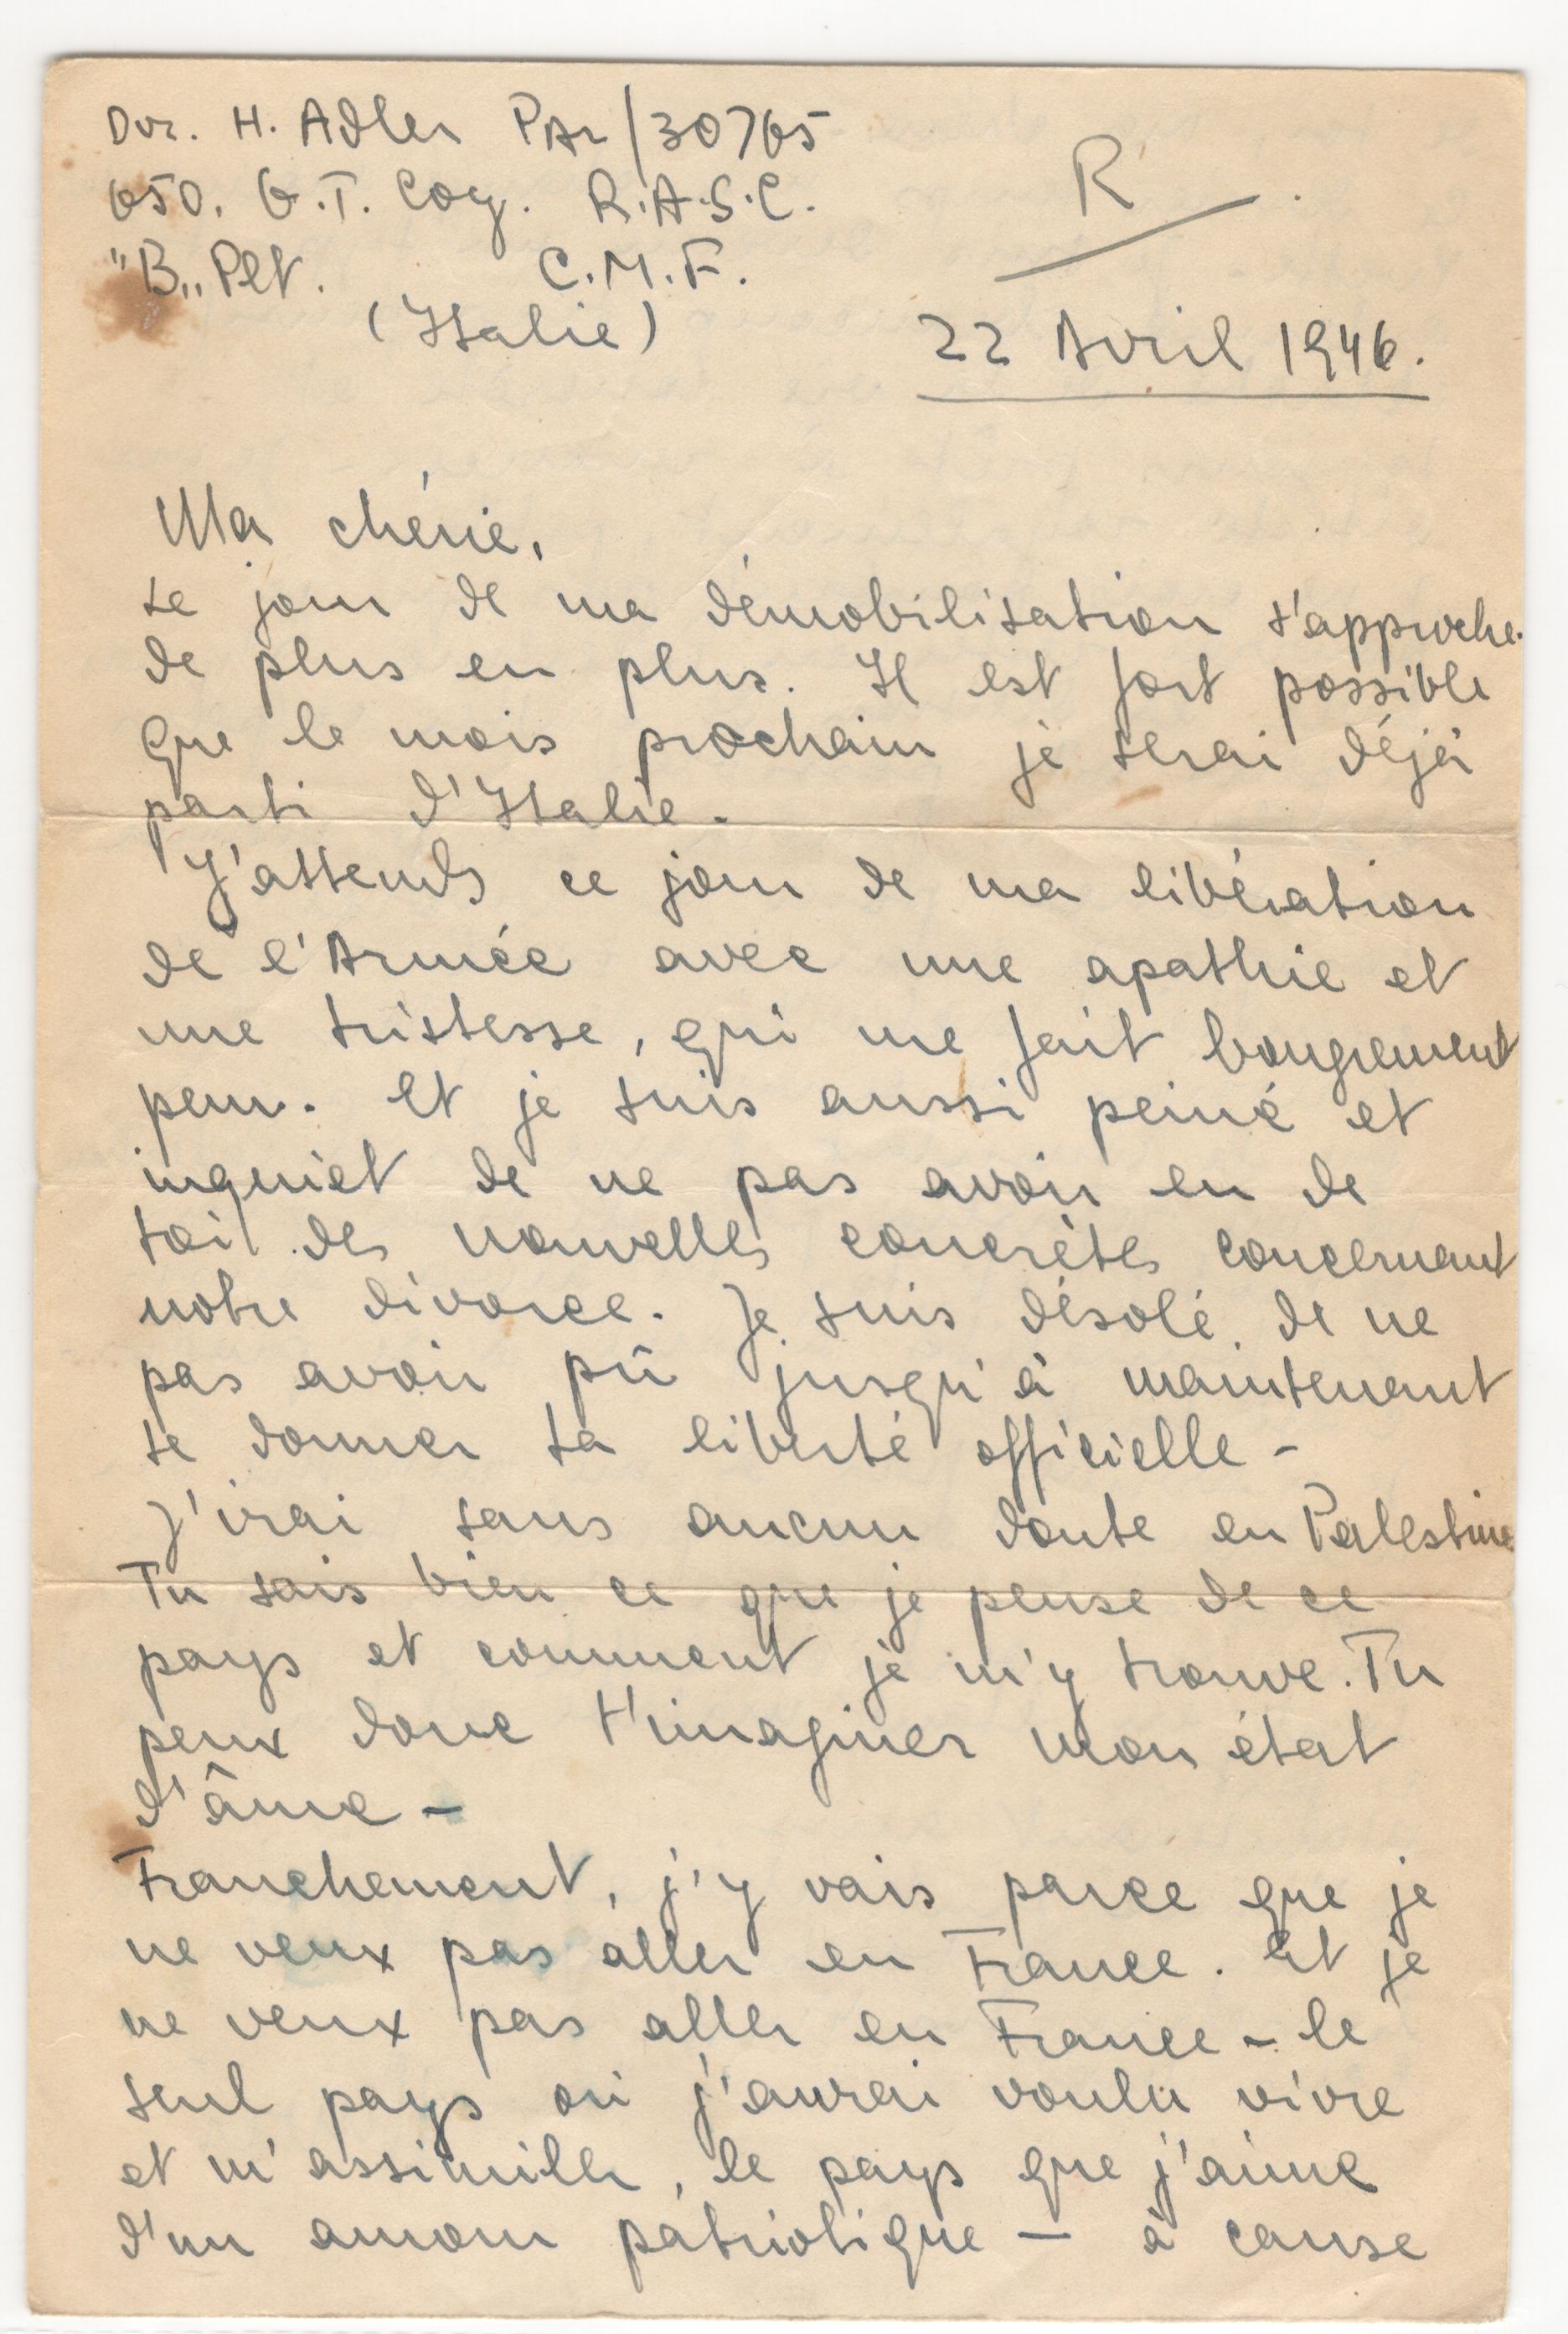 Dvr. H. Adler PAL/30765
650. G.T. Coy. R.A.S.C.
"B" Plt. C.M.F.
(Italie)
R
22 Avril 1946.
Ma chérie,
Le jour de ma démobilisation s'approche
de plus en plus. Il est fort possible
que le mois prochain je serai déjà
parti d'Italie.
J'attends ce jour de ma libération
de l'Armée avec une apathie et
une tristesse, qui me fait bougrement
peur. Et je suis aussi peiné et
inquiet de ne pas avoir eu de
toi des nouvelles concrètes concernant
notre divorce. Je suis désolé de ne
pas avoir pû jusqu'à maintenant
te donner ta liberté officielle -
J'irai sans aucun doute en Palestine
Tu sais bien ce que je pense de ce
pays et comment je m'y trouve. Tu
peux donc t'imaginer mon état
d'âme -
Franchement, j'y vais parce que je
ne veux pas aller en France. Et je
ne veux pas aller en France - le
seul pays où j'aurai voulu vivre
et m'assimiler, le pays que j'aime
d'un amour patriotique - à cause